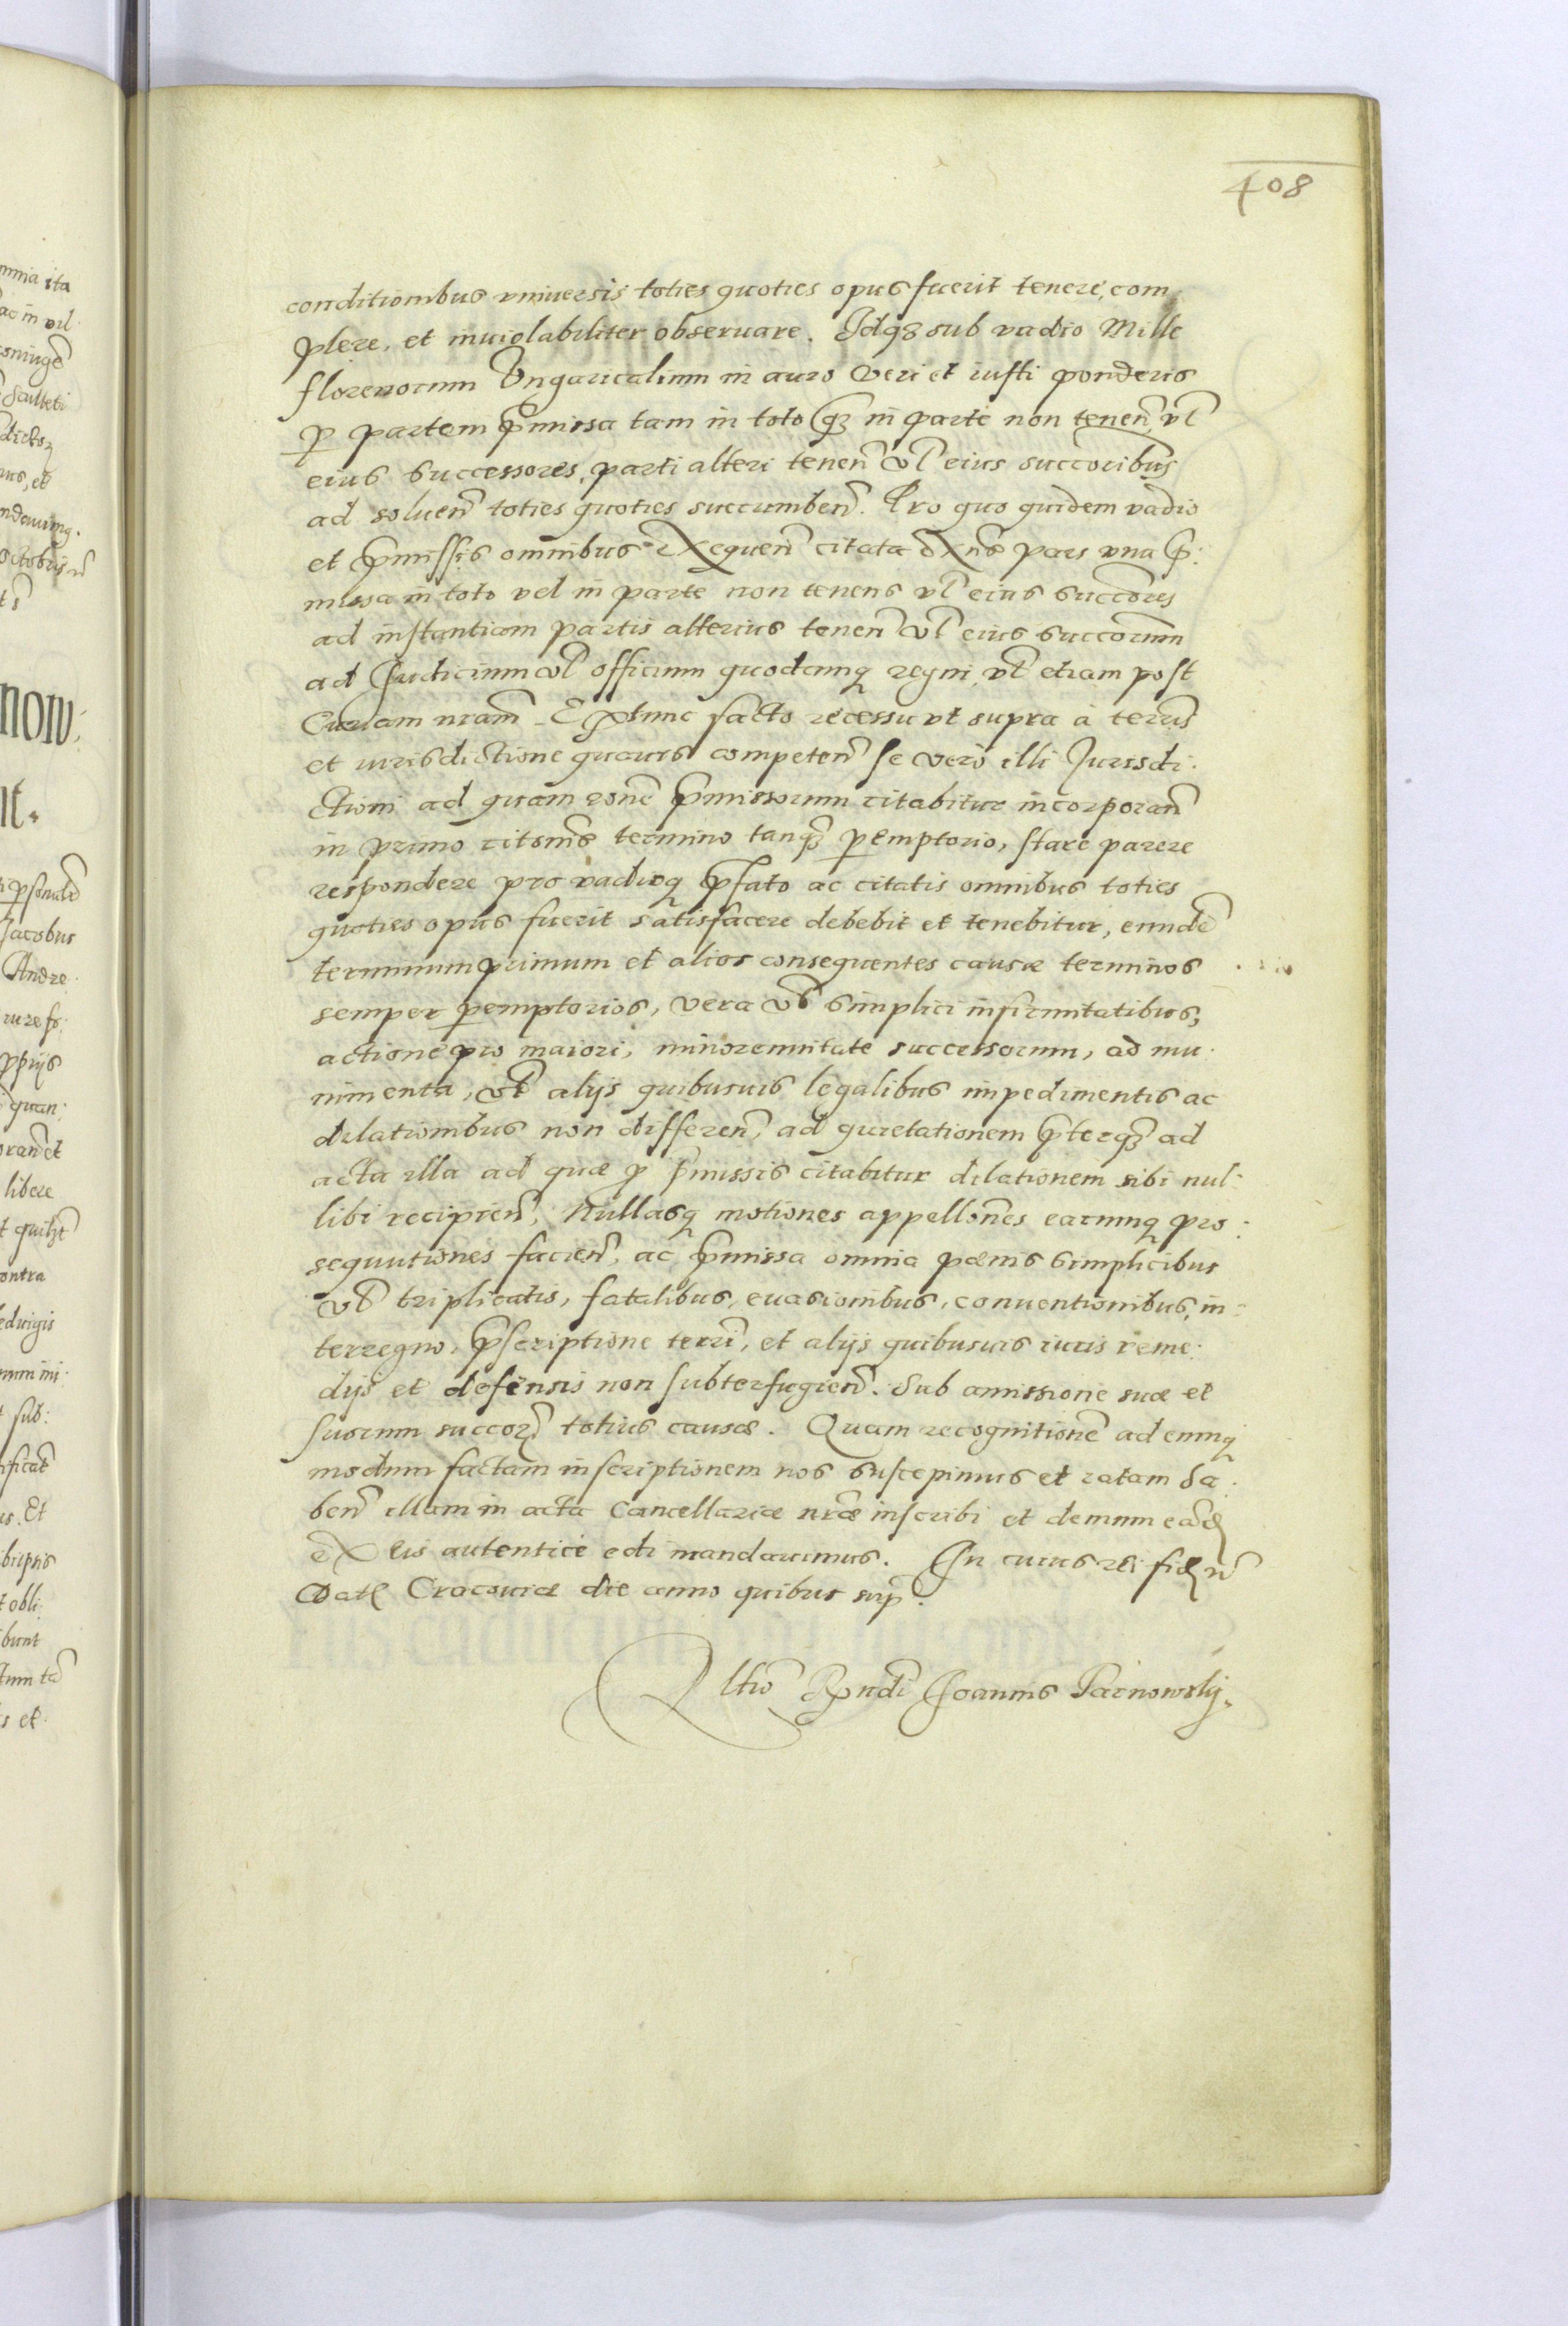 408
conditionibus vniuersis toties quoties opus fuerit tenere, com
plere, et inuiolabiliter obseruare. Idqȝ sub vadio Mille
florenorum Vngaricalium in auro veri et iusti ponderis
p partem pmissa tam in toto qȝ in parte non tenen, vl
eius Successores, parti alteri tenen vl eius succoribus
ad soluen toties quoties succumben. Pro quo quidem vadio
et pmissis omnibus exequen citata exns pars vna p:
missa in toto vel in parte non tenens vl eius succores
ad instantiam partis alterius tenen vl eius succorum
ad Judicium vl officium quodcunq regni, vl etiam post
Curiam nram. Extunc facto recessu vt supra à terris
et iurisdictione quauis competen se vero illi Jurisdi.
ctioni ad quam rone pmissorum citabitur incorporan
in primo citonis termino tanqȝ pemptorio, stare parere
respondere pro vadioq pfato ac citatis omnibus toties
quoties opus fuerit satisfacere debebit et tenebitur, eunde
terminum primum et alios consequentes causæ terminos
semper pemptorios, vera vl simplici infirmitatibus,
actione pro maiori, minorennitate successorum, ad mu.
nimenta, vl alijs quibusuis legalibus impedimentis ac
dilationibus non differen, ad quietationem pterqȝ ad
acta illa ad quæ p pmissis citabitur dilationem sibi nul:
libi recipien, Nullasq motiones appellones earumq pro:
sequutiones facien, ac pmissa omnia pœnis simplicibus
vl triplicatis, fatalibus, euasionibus, conuentionibus, in:
terregno, pscriptione terri, et alijs quibusuis iuris reme:
dijs et defensis non subterfugien. Sub amissione suæ et
suorum succor totius causæ. Quam recognitione ad eumq
modum factam inscriptionem nos suscepimus et ratam ha.
ben illam in acta Cancellariæ nræ inscribi et demum ead
ex eis autentice edi mandauimus. In cuius rei fid
Dat Cracouiæ die anno quibus sup.
Rndi Joannis Tarnowskij.